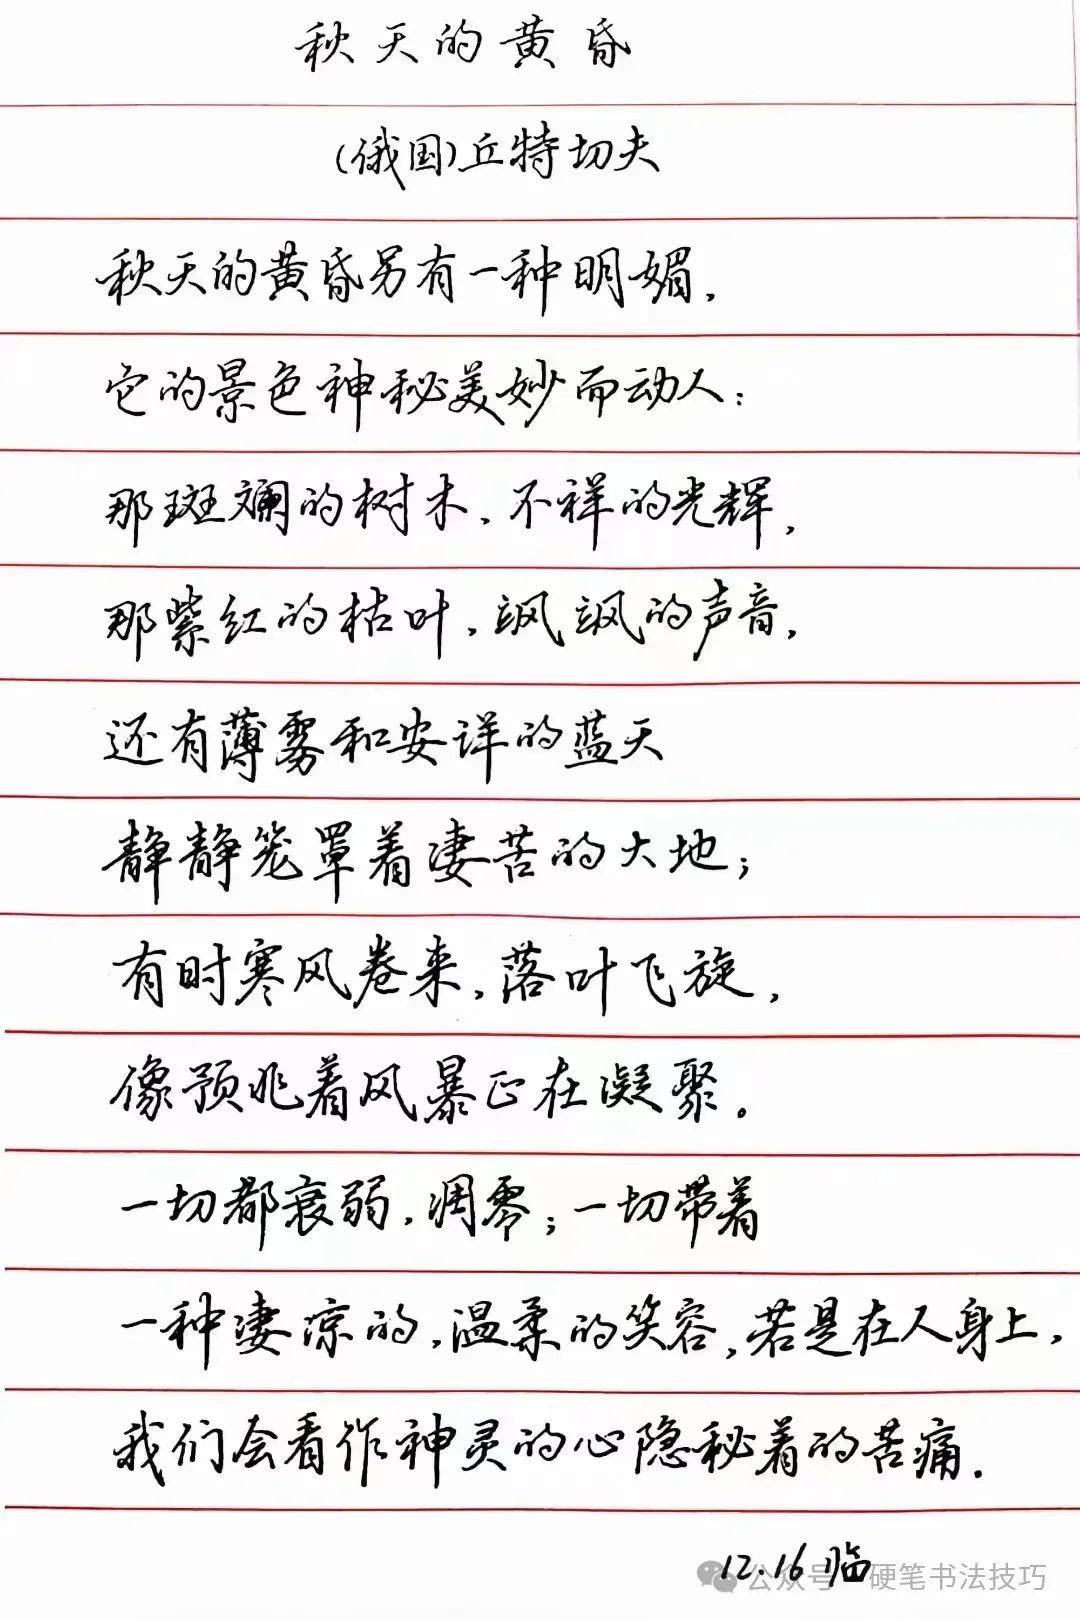 秋天的黄昏
(俄国)丘特切夫
秋天的黄昏另有一种明媚,
它的景色神秘美妙而动人:
那斑斓的树木,不祥的光辉,
那紫红的枯叶,飒飒的声音,
还有薄雾和安详的蓝天
静静笼罩着凄苦的大地;
有时寒风卷来,落叶飞旋,
像预兆着风暴正在凝聚。
一切都衰弱,凋零;一切带着
一种凄凉的,温柔的笑容,若是在人身上,
我们会看作神灵的心隐秘着的苦痛.
12.16临
公众号 硬笔书法技巧